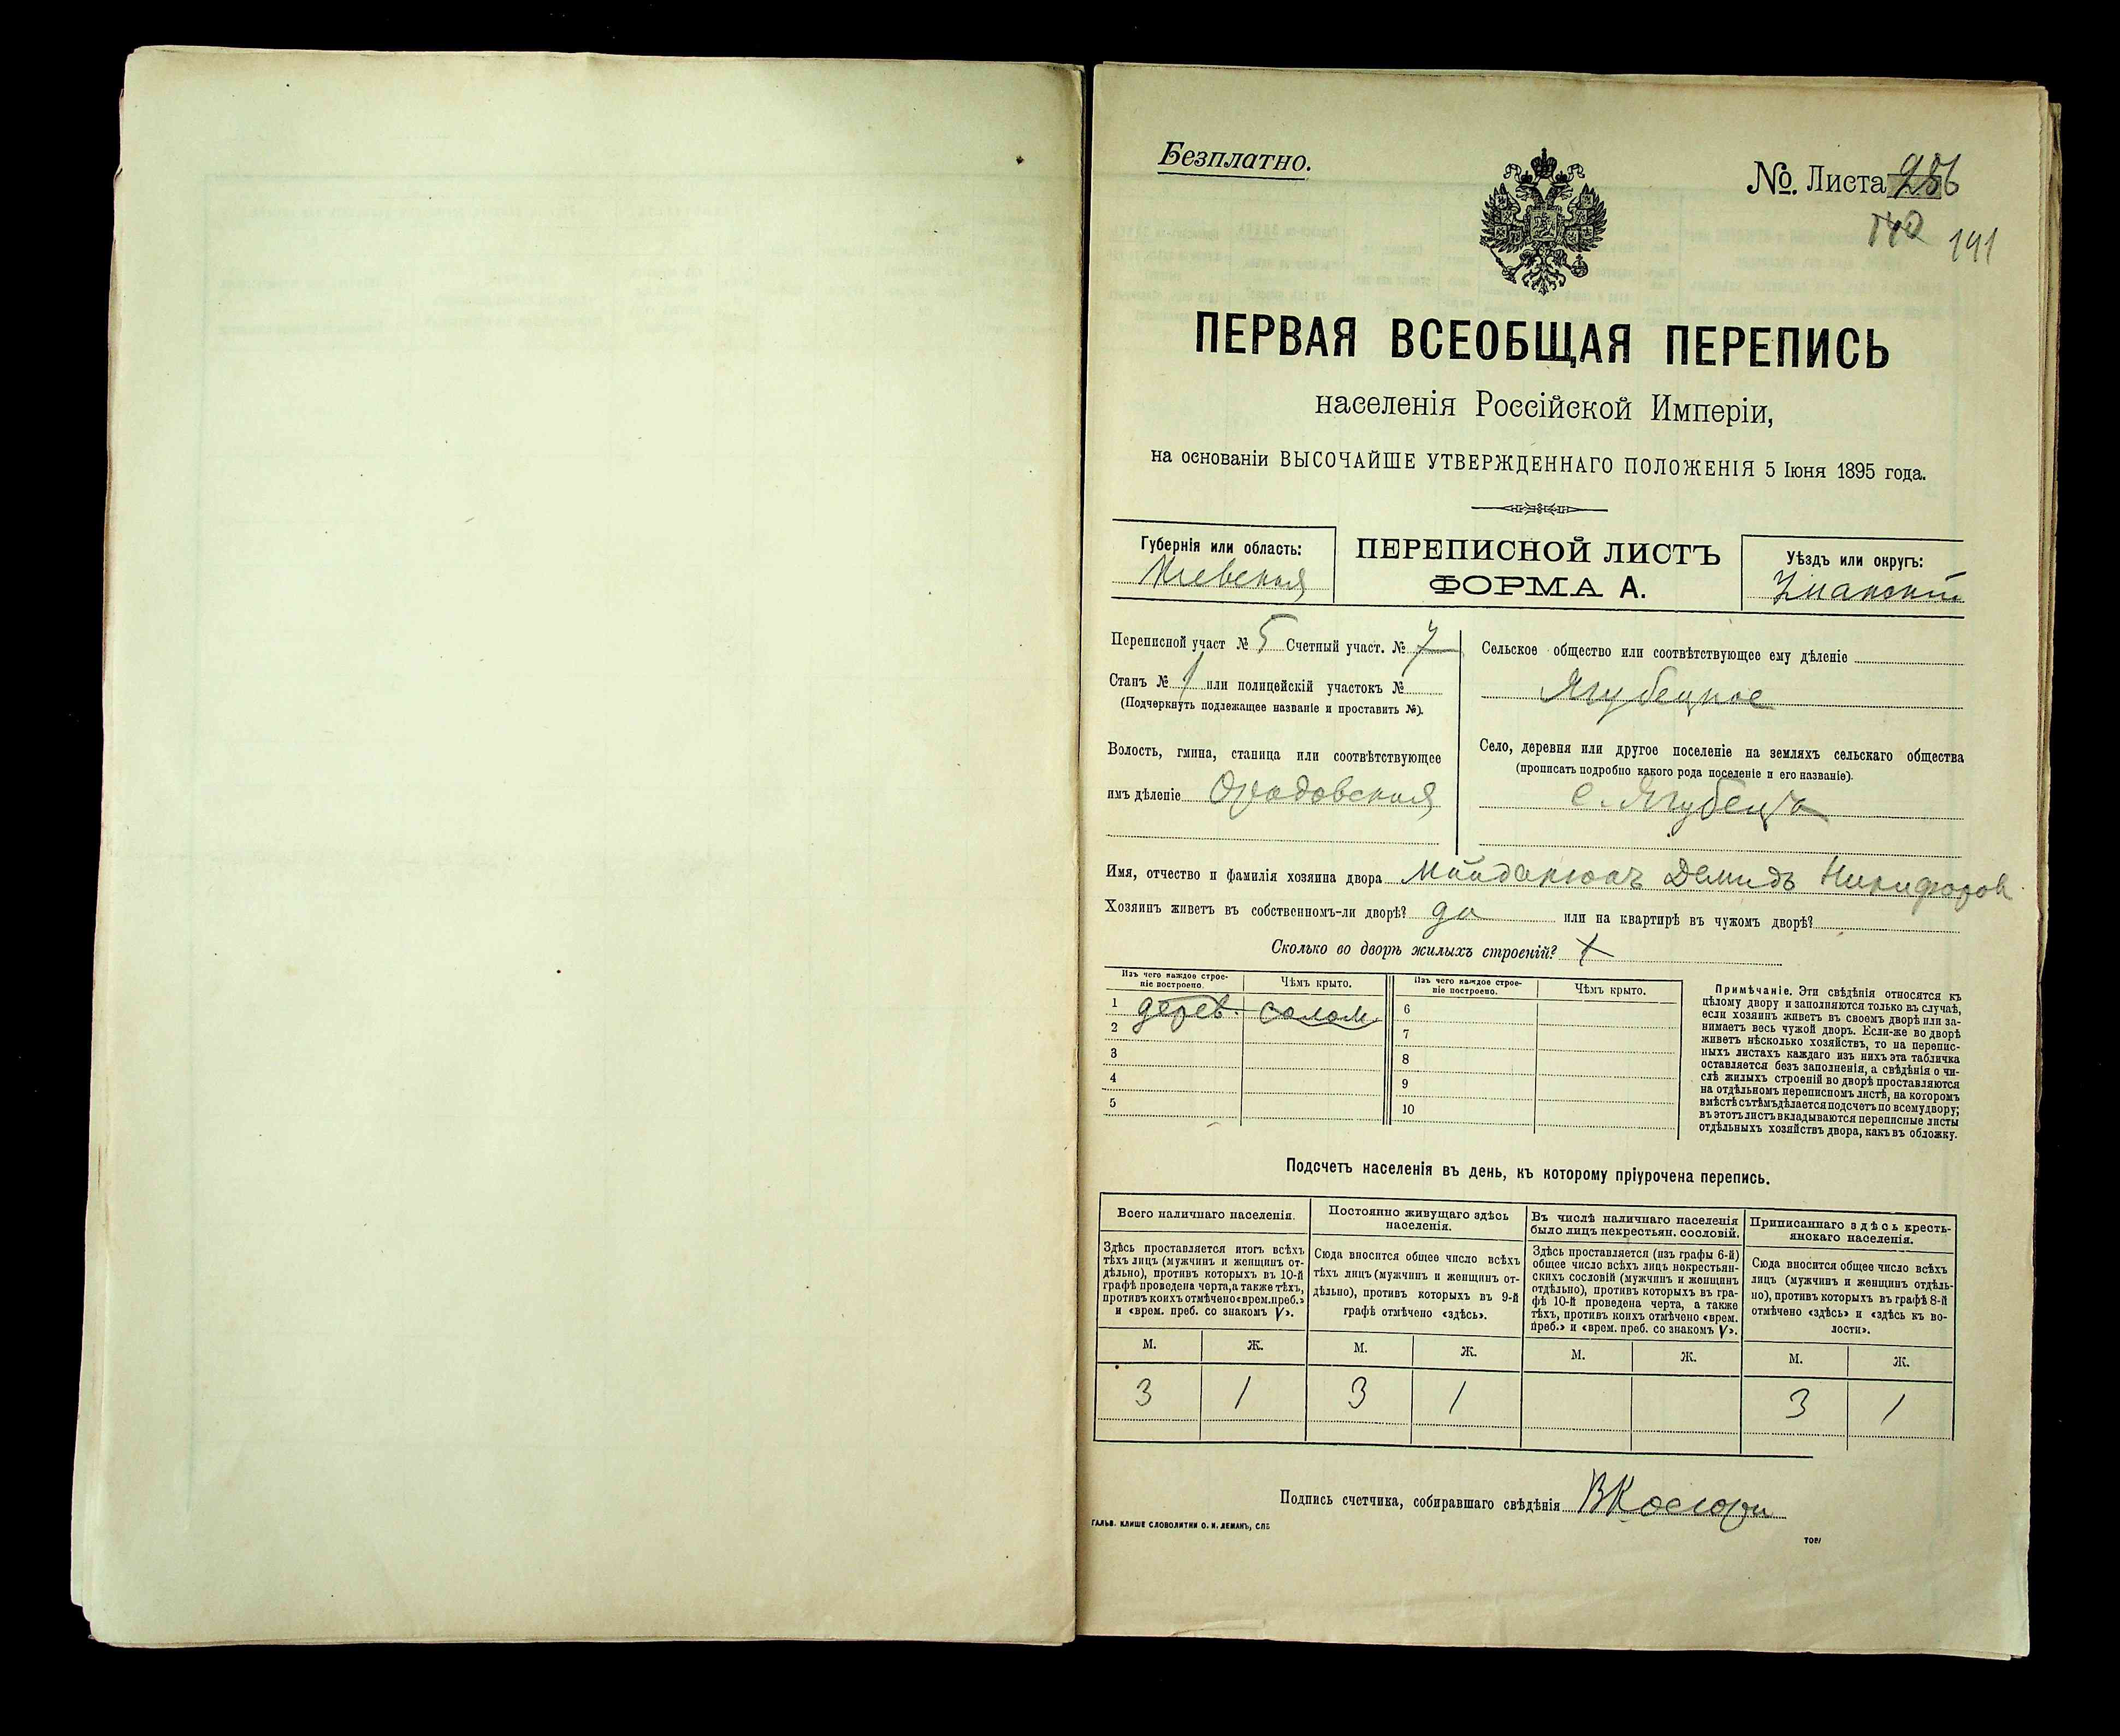 Безплатно.
№. Листа 256
140 141
ПЕРВАЯ ВСЕОБЩАЯ ПЕРЕПИСЬ
населенія Россійской Имперіи,
на основаніи ВЫСОЧАЙШЕ УТВЕРЖДЕННАГО ПОЛОЖЕНІЯ 5 Іюня 1895 года.
Губернія или область:
Кіевская
ПЕРЕПИСНОЙ ЛИСТЪ
ФОРМА А.
Уѣздъ или округъ:
Уманскій
Переписной участ № 5 Счетный участ. № 7
Станъ № 1 или полицейскій участокъ №
(Подчеркнуть подлежащее названіе и проставить №).
Волость, гмина, станица или соотвѣтствующее
имъ дѣленіе Оратовская
Сельское общество или соотвѣтствующее ему дѣленіе
Ягубецкое
Село, деревня или другое поселеніе на земляхъ сельскаго общества
(прописать подробно какого рода поселеніе и его названіе).
с. Ягубецъ
Имя, отчество и фамилія хозяина двора Майданюкъ Демидъ Никифоров
Хозяинъ живетъ въ собственномъ-ли дворѣ? да или на квартирѣ въ чужомъ дворѣ?
Сколько во дворѣ жилыхъ строеній? 1
Изъ чего каждое строе-
ніе построено.
Чѣмъ крыто.
Изъ чего каждое строе-
ніе построено.
Чѣмъ крыто.
1 дерев. солом.
2
3
4
5
6
7
8
9
10
Примѣчаніе. Эти свѣдѣнія относятся къ
цѣлому двору и заполняются только въ случаѣ,
если хозяинъ живетъ въ своемъ дворѣ или за-
нимаетъ весь чужой дворъ. Если-же во дворѣ
живетъ нѣсколько хозяйствъ, то на перепис-
ныхъ листахъ каждаго изъ нихъ эта табличка
оставляется безъ заполненія, а свѣдѣнія о чи-
слѣ жилыхъ строеній во дворѣ проставляются
на отдѣльномъ переписномъ листѣ, на которомъ
вмѣстѣ съ тѣмъ дѣлается подсчетъ по всему двору;
въ этотъ листъ вкладываются переписные листы
отдѣльныхъ хозяйствъ двора, какъ въ обложку.
Подсчетъ населенія въ день, къ которому пріурочена перепись.
Всего наличнаго населенія.
Здѣсь проставляется итогъ всѣхъ
тѣхъ лицъ (мужчинъ и женщинъ от-
дѣльно), противъ которыхъ въ 10-й
графѣ проведена черта, а также тѣхъ,
противъ коихъ отмѣчено «врем. преб.»
и «врем. преб. со знакомъ V».
Постоянно живущаго здѣсь
населенія.
Сюда вносится общее число всѣхъ
тѣхъ лицъ (мужчинъ и женщинъ от-
дѣльно), противъ которыхъ въ 9-й
графѣ отмѣчено «здѣсь».
Въ числѣ наличнаго населенія
было лицъ некрестьян. сословій.
Здѣсь проставляется (изъ графы 6-й)
общее число всѣхъ лицъ некрестьян-
скихъ сословій (мужчинъ и женщинъ
отдѣльно), противъ которыхъ въ гра-
фѣ 10-й проведена черта, а также
тѣхъ, противъ коихъ отмѣчено «врем.
преб.» и «врем. преб. со знакомъ V».
Приписаннаго здѣсь кресть-
янскаго населенія.
Сюда вносится общее число всѣхъ
лицъ (мужчинъ и женщинъ отдѣль-
но), противъ которыхъ въ графѣ 8-й
отмѣчено «здѣсь» и «здѣсь къ во-
лости».
М. Ж. М. Ж. М. Ж. М. Ж.
3 1 3 1 3 1
Подпись счетчика, собиравшаго свѣдѣнія
ГАЛЬВ. КЛИШЕ СЛОВОЛИТНИ О. И. ЛЕМАНЪ, СПБ